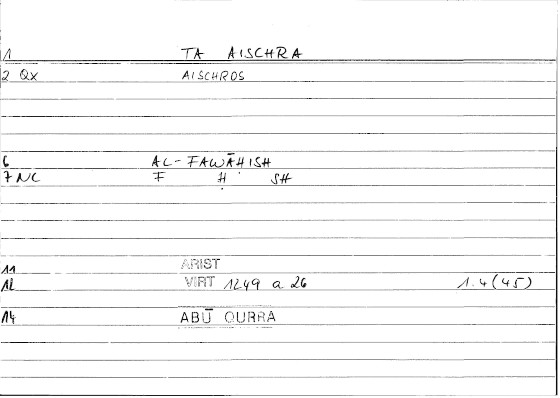 1 TA AISCHRA
2 Qx AISCHROS
6 AL-FAWĀḤISH
7 NC F Ḥ SH
11 ARIST
12 VIRT 1249 a 26 1.4(45)
14 ABŪ QURRA